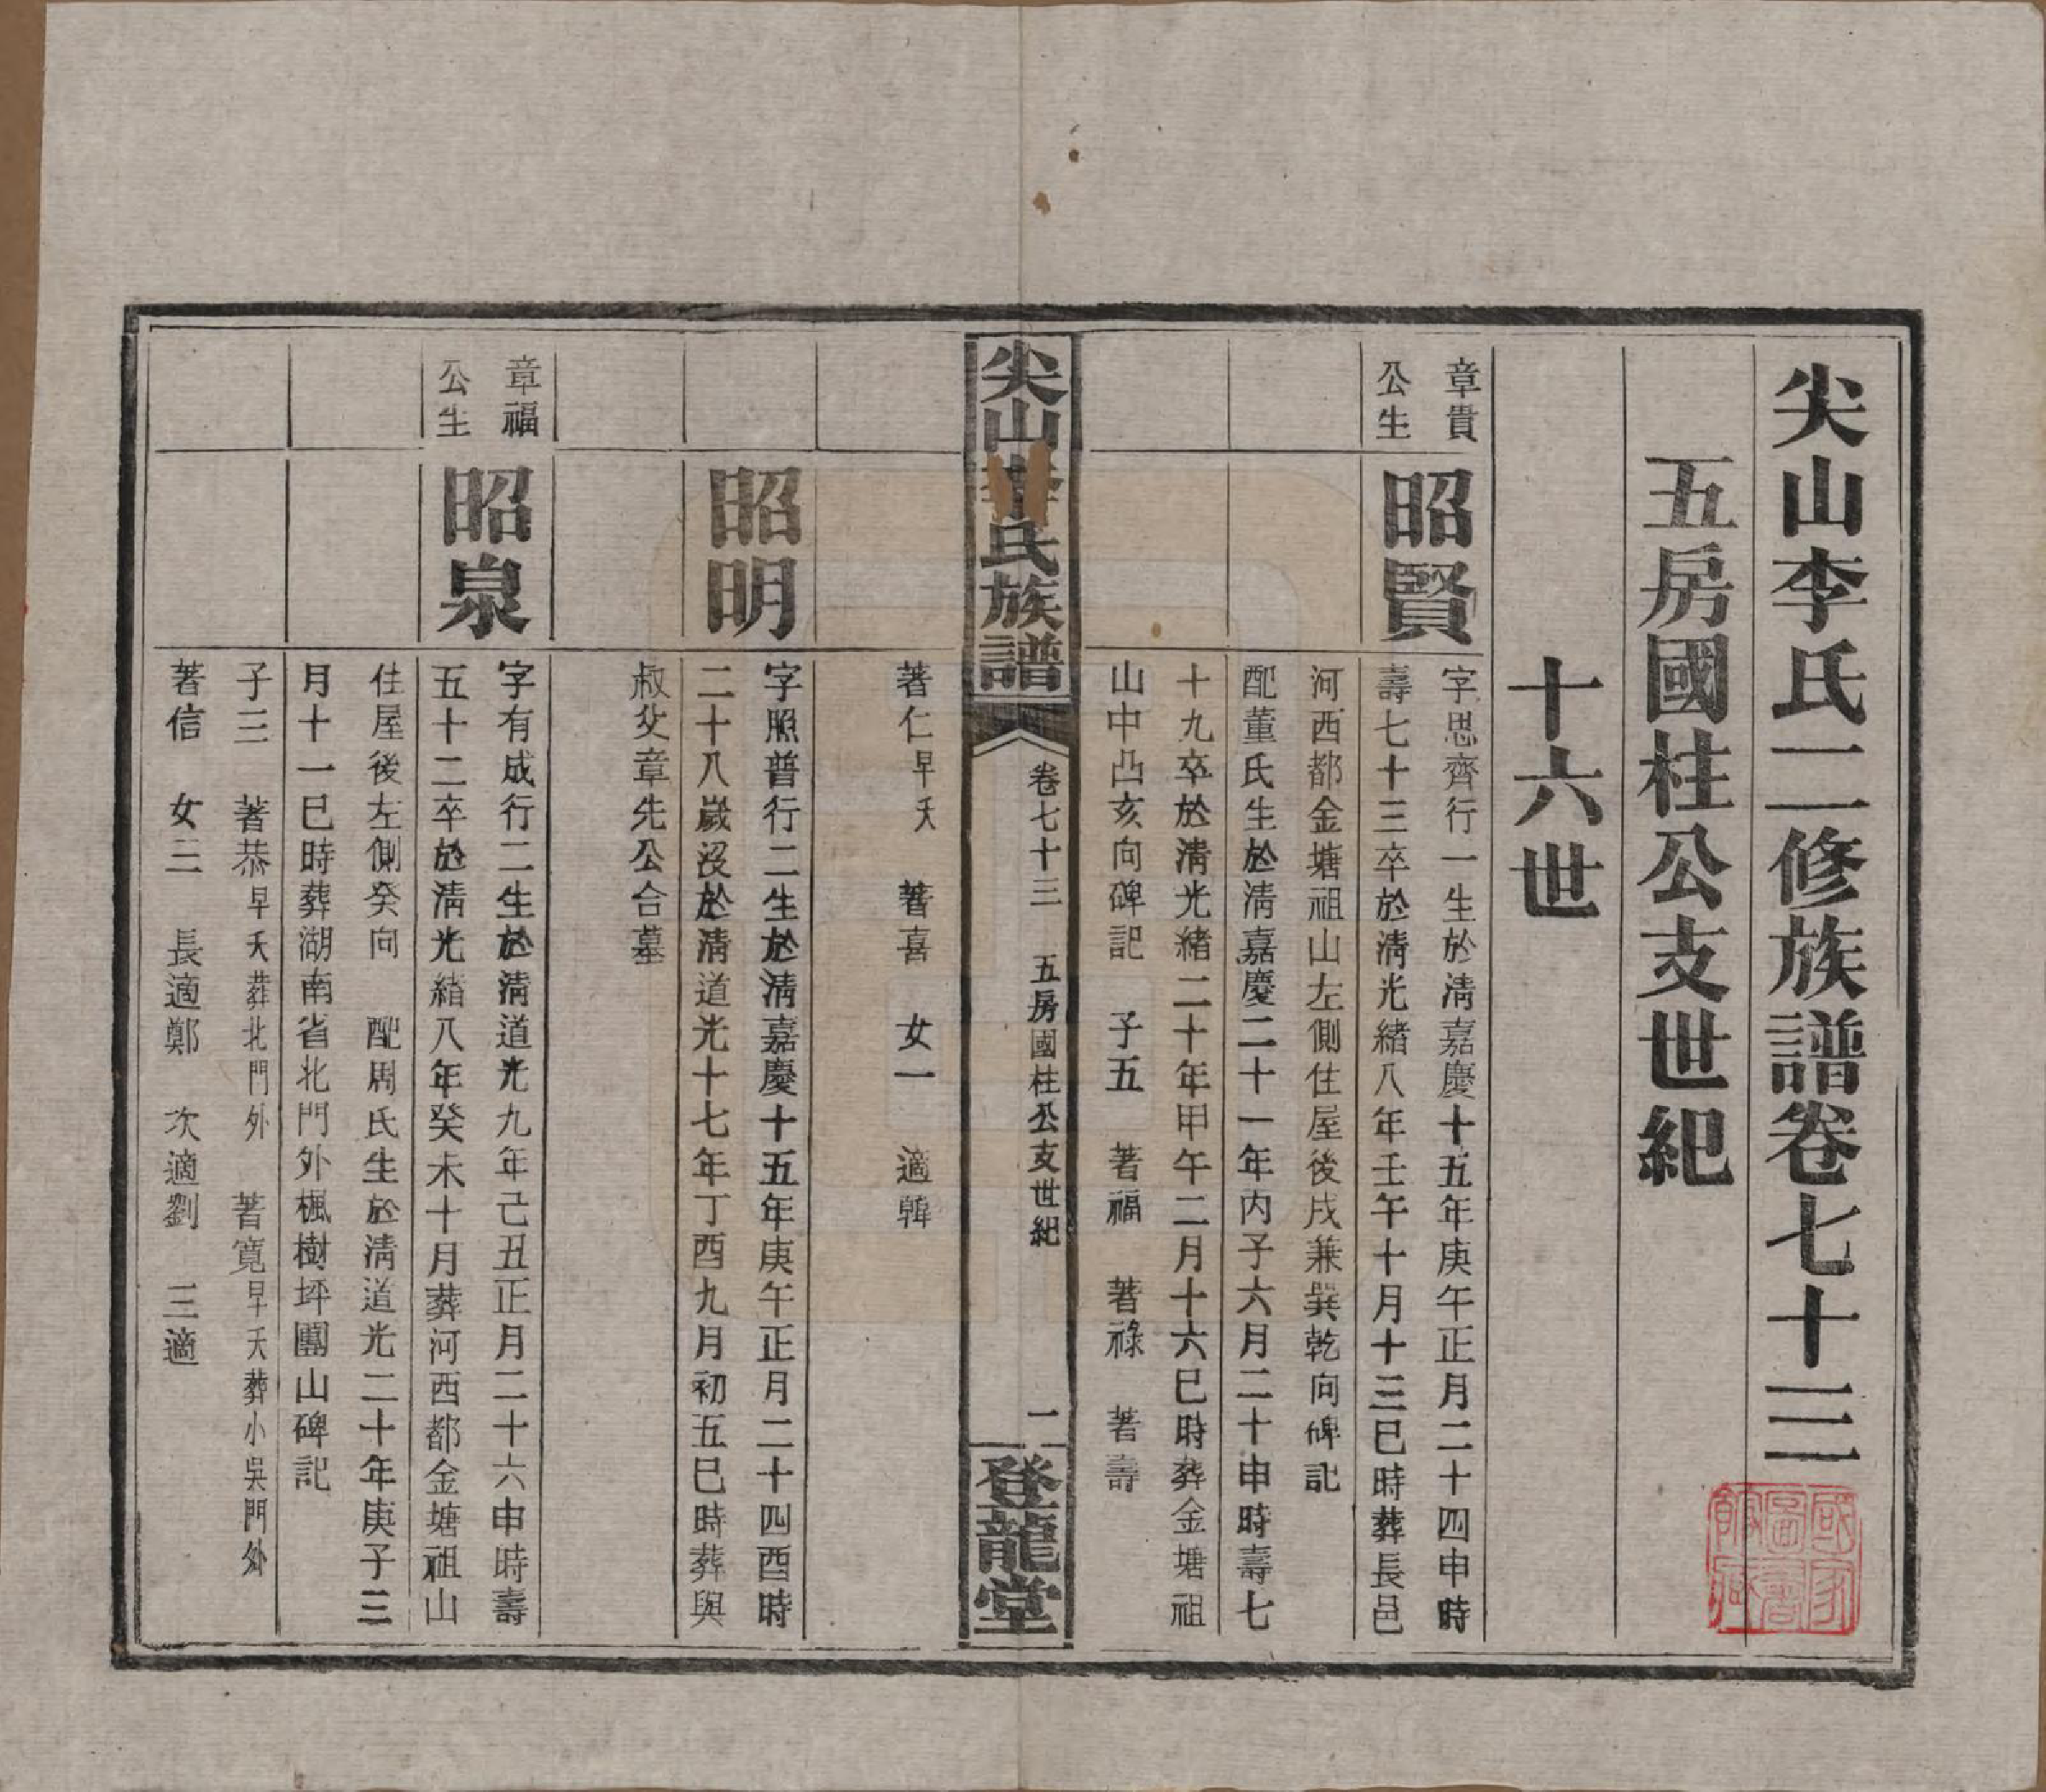 尖山李氏二修族譜卷七十三
五房國柱公支世紀
十六世
章貴
公生
昭賢
字思齊行一生於清嘉慶十五年庚午正月二十四申時
壽七十三卒於清光緒八年壬午十月十三巳時葬長邑
河西都金塘祖山左側住屋後戌兼巽乾向碑記
配董氏生於清嘉慶二十一年丙子六月二十申時壽七
十九卒於清光緒二十年甲午二月十六巳時葬金塘祖
山中凸亥向碑記　子五　著福　著祿　著壽
尖山李氏族譜
卷七十三　五房國柱公支世紀
一
登龍堂
著仁早夭　著喜　女一　適韓
昭明
字照普行二生於清嘉慶十五年庚午正月二十四酉時
二十八歲沒於清道光十七年丁酉九月初五巳時葬與
叔父章先公合墓
章福
公生
昭泉
字有成行二生於清道光九年己丑正月二十六申時壽
五十二卒於清光緒八年癸未十月葬河西都金塘祖山
住屋後左側癸向　配周氏生於清道光二十年庚子三
月十一巳時葬湖南省北門外楓樹坪團山碑記
子三　著恭早夭葬北門外　著寬早夭葬小吳門外
著信　女三　長適鄭　次適劉　三適
國家圖書館藏